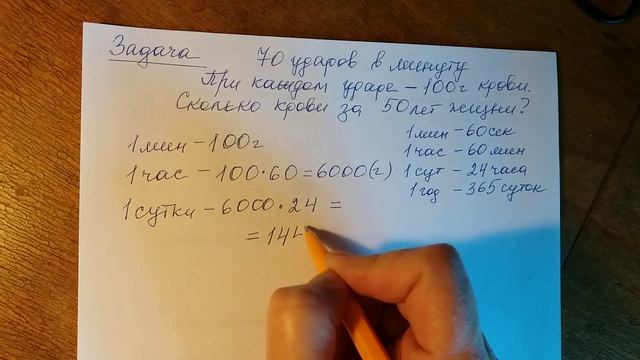 Задача
70 ударов в минуту
При каждом ударе – 100г крови.
Сколько крови за 50 лет жизни?
1 мин – 100г
1 час – 100·60=6000(г)
1 сутки – 6000·24 =
= 144
1 мин – 60 сек
1 час – 60 мин
1 сут – 24 часа
1 год – 365 суток